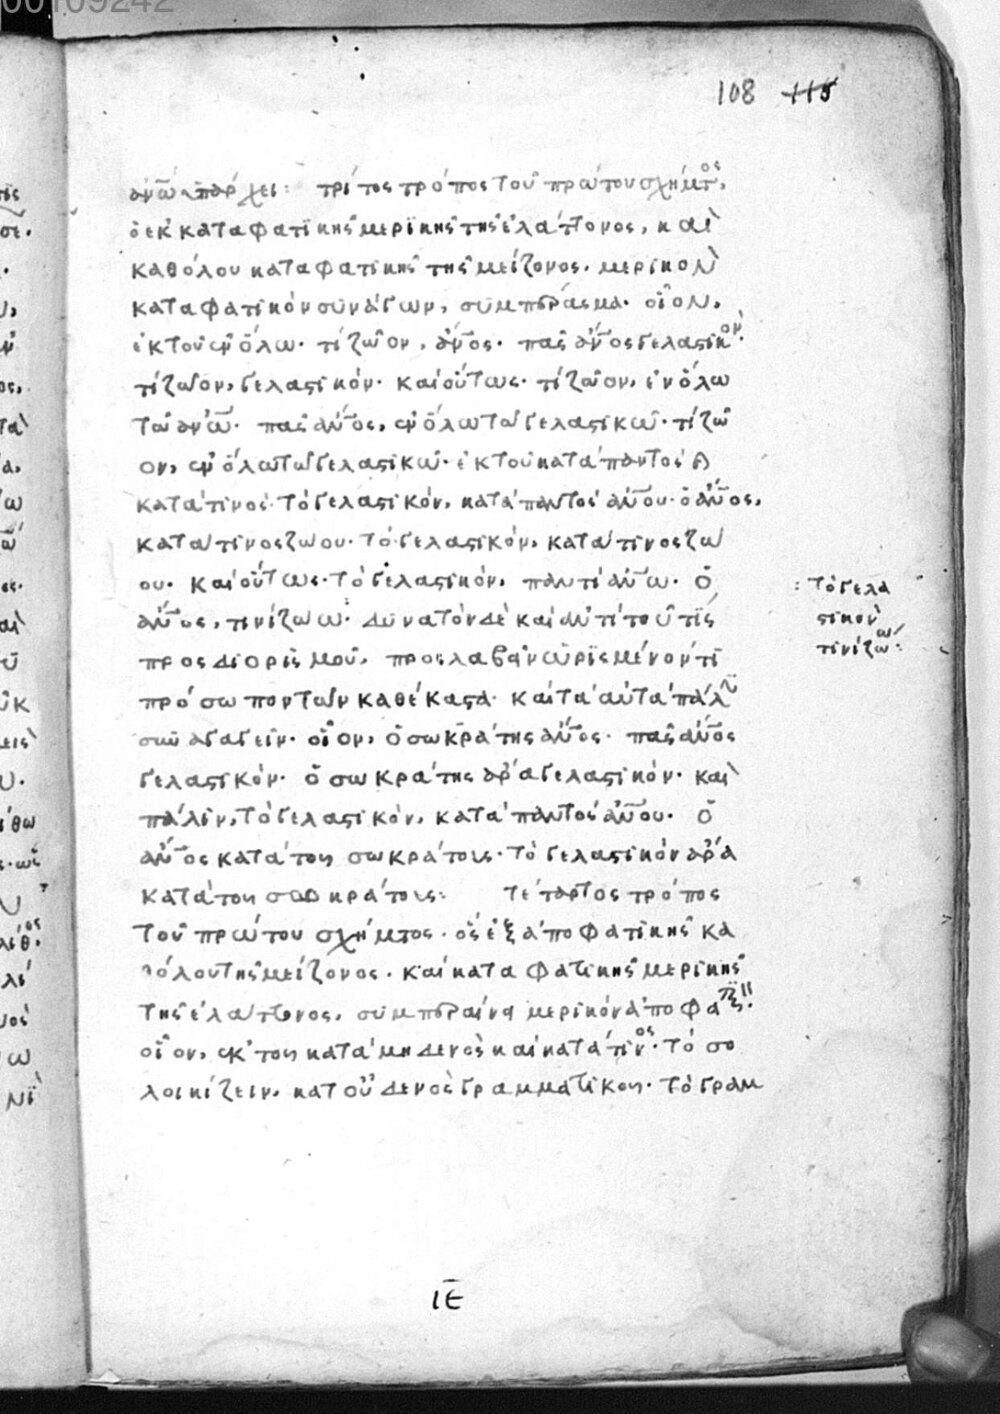 00109242
108 115
ἀνω ὑπάρχει: τρίτος τρόπος τοῦ πρώτου σχήμτος,
ὁ ἐκ καταφατικῆς μερικῆς τῆς ἐλάττονος, καὶ
καθόλου καταφατικῆς τῆς μείζονος. μερικὸν
καταφατικὸν συνάγων, συμπέρασμα. οἷον,
ἐκ τοῦ ἐν ὅλω. τὶ ζῶον, ἄνος. πᾶς ἄνος γελαστικόν.
τὶ ζῶον, γελαστικόν. καὶ οὕτως. τὶ ζῶον, ἐν ὅλω
τῶ ἀνω. πᾶς ἄνος, ἐν ὅλω τῶ γελαστικῶ. τὶ ζῶ
ον, ἐν ὅλω τῶ γελαστικῶ. ἐκ τοῦ κατὰ παντὸς
κατὰ τινος. τὸ γελαστικόν, κατὰ παντὸς ἀνου. ὁ ἄνος,
κατὰ τινος ζώου. τὸ γελαστικόν, κατὰ τινος ζώ
ου. καὶ οὕτως. τὸ γελαστικόν, παντὶ ἀνω. ὁ
ἄνος, τινὶ ζώω. δυνατὸν δὲ καὶ ἀντὶ τοῦ τὶς
: τὸ γελα
στικὸν
τινὶ ζώω:
προσδιορισμοῦ, προσλαβεῖν ὡρισμένον τὶ
πρόσωπον τῶν καθέκαστα. καὶ τὰ αὐτὰ πάλιν
συνάγαγεῖν. οἷον, ὁ σωκράτης ἄνος. πᾶς ἄνος
γελαστικόν. ὁ σωκράτης ἄρα γελαστικόν. καὶ
πάλιν, τὸ γελαστικόν, κατὰ παντὸς ἀνου. ὁ
ἄνος κατὰ του σωκράτους. τὸ γελαστικὸν ἄρα
κατὰ του σωκράτους: τέταρτος τρόπος
τοῦ πρώτου σχήμτος. ὃς ἐξ ἀποφατικῆς κα
θόλου τῆς μείζονος. καὶ καταφατικῆς μερικῆς
τῆς ἐλάττονος, συμπεραίνει μερικὸν ἀπόφα
οἷον, ἐκ του κατὰ μηδενὸς καὶ κατὰ τινος. τὸ σο
λοικίζειν, κατ οὐδενὸς γραμματικου. τὸ γραμ
ΙΕ